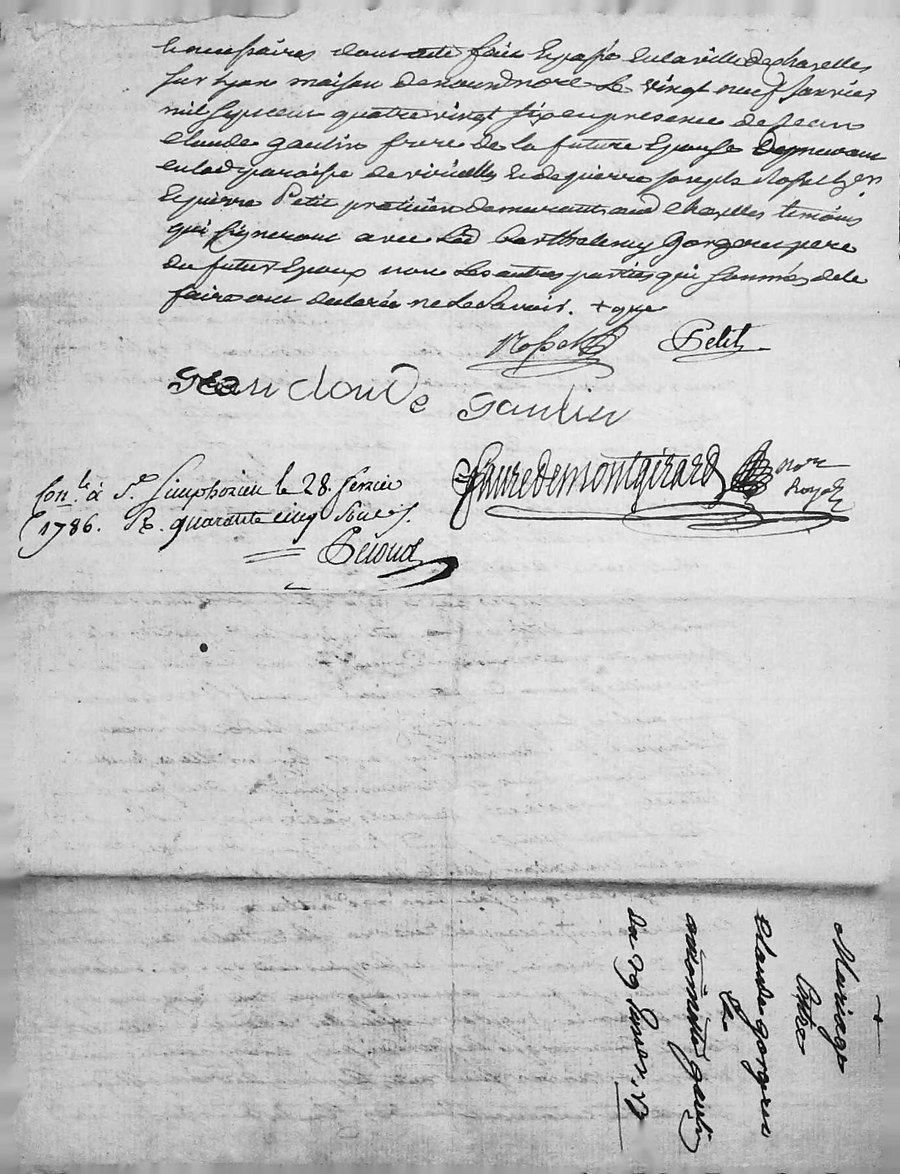 necessaires dont acte fait & passé en la ville de chazelles
sur Lyon maison de nous d. nore. Le vingt neuf Janvier
mil sept cent quatre vingt six en presence de Jean
claude gaulin frere de la future Epouse Demeurant
en lad. paroisse de & de pierre joseph
& pierre Petit praticien demeurants aud. chazelles temoins
qui signeront avec Led. Barthelemy gorgeret pere
du futur Epoux non Les autres parties qui sommés de le
faire ont declarés ne le savoir.
Petit
Jean cloude gaulin
faure de montgirard nore
Royal
con.le à St. Simphorien le 28. fevrier
1786. R. quarante cinq sous.
Mariage
Entre
Claude gorgeret
&
antoinette gaulin
du 29 Janvier